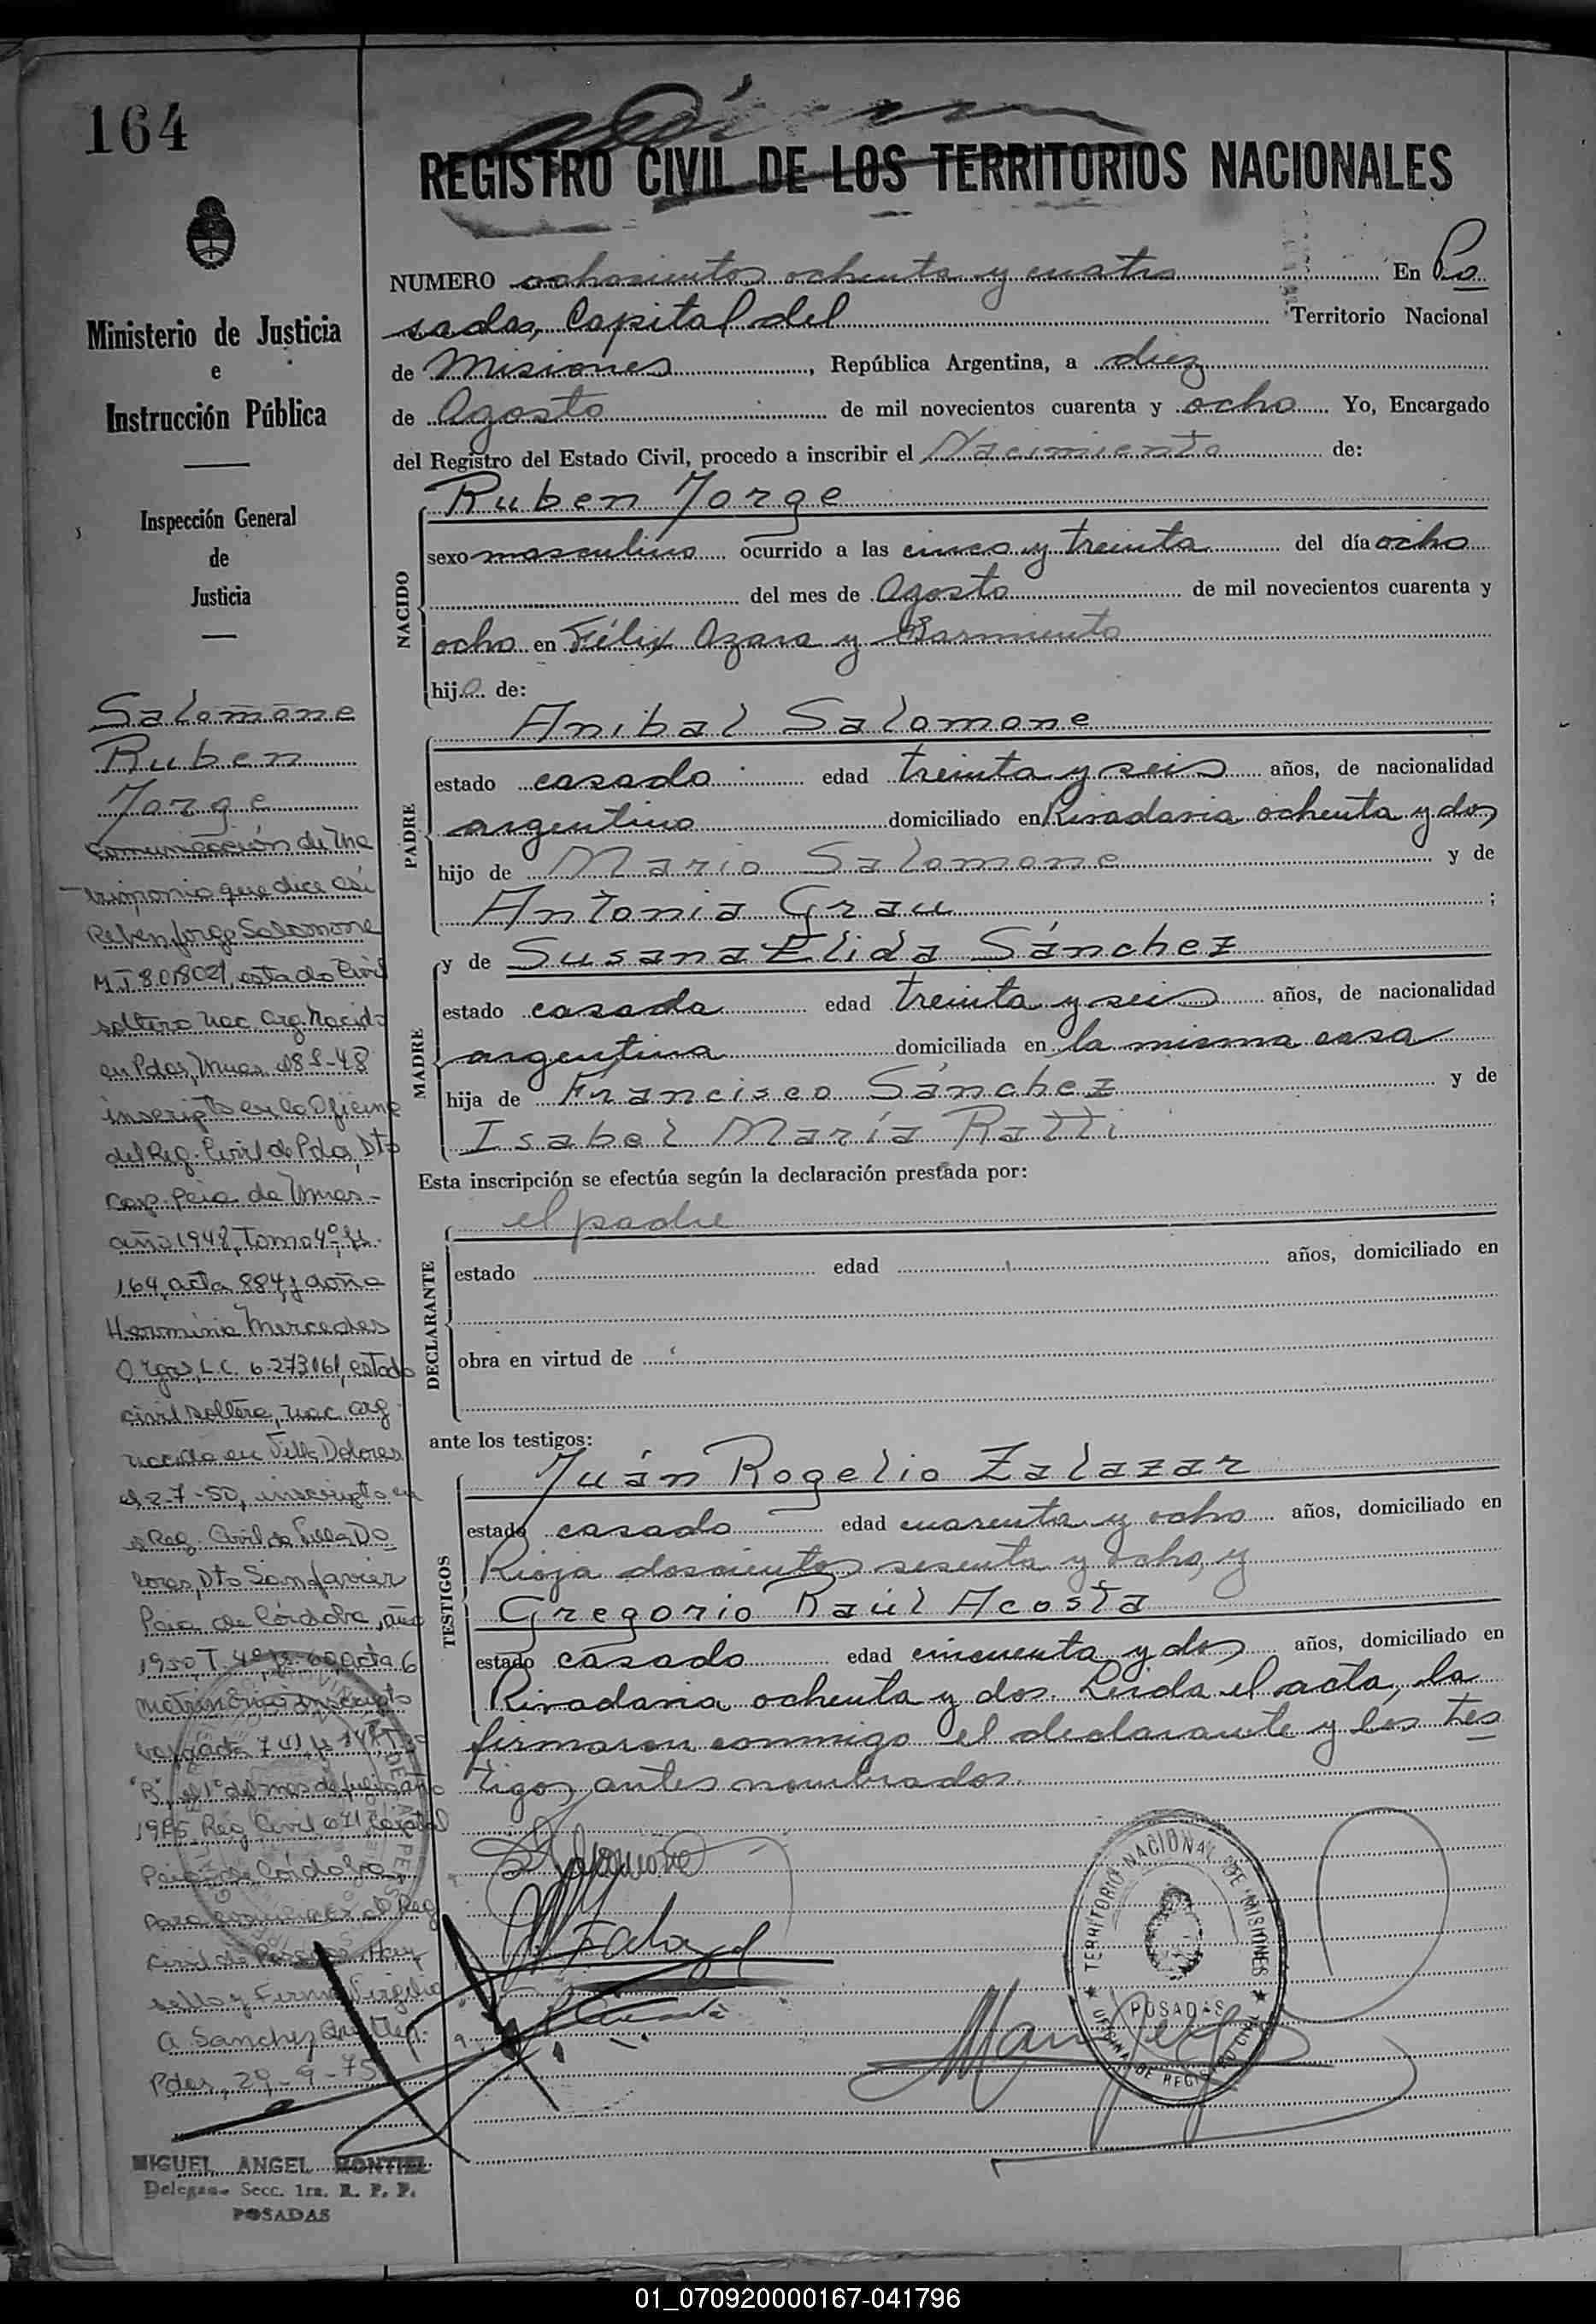 164
Ministerio de Justicia
e
Instrucción Pública
Inspección General
de
Justicia
Salomone
Ruben
Jorge
comunicación de Ma
trimonio que dice así
Ruben Jorge Salomone
estado civil
soltero nac. arg. nacido
en Pdas, Mnes. el 8-8-48
inscripto en la Oficina
del Reg. Civil de Pdas, Dto
Cap. Pcia de Mnes-
año 1948, Tomo 4º, fs.
164, acta 884, y doña
Herminia Mercedes
L.C. 6.273161, estado
civil soltera, nac. arg
nacida en Villa Dolores
el 2-7-50, inscripta en
el Reg. Civil de Villa Do
lores, Dto San Javier
Pcia de Córdoba, año
1950 T. 4º, fs. 60, acta 6
matrimonio inscripto
"B", el 1º del mes de julio año
Reg. Civil Capital
Pcia de Córdoba
Reg
Civil de Posadas. Hay
sello y Firma Virgilio
A. Sanchez
Pdas, 29-9-75
MIGUEL ANGEL MONTIEL
Delegado Secc. 1ra. R. P. P.
POSADAS
REGISTRO CIVIL DE LOS TERRITORIOS NACIONALES
NUMERO ochocientos ochenta y cuatro En Po
sadas, Capital del Territorio Nacional
de Misiones, República Argentina, a diez
de Agosto de mil novecientos cuarenta y ocho Yo, Encargado
del Registro del Estado Civil, procedo a inscribir el Nacimiento de:
NACIDO
Ruben Jorge
sexo masculino ocurrido a las cinco y treinta del día ocho
del mes de Agosto de mil novecientos cuarenta y
ocho en Félix Azara y Sarmiento
hijo de:
PADRE
Anibal Salomone
estado casado edad treinta y seis años, de nacionalidad
argentino domiciliado en Rivadavia ochenta y dos
hijo de Mario Salomone y de
Antonia Grau ;
MADRE
y de Susana Elida Sánchez
estado casada edad treinta y seis años, de nacionalidad
argentina domiciliada en la misma casa
hija de Francisco Sánchez y de
Isabel María Ratti
Esta inscripción se efectúa según la declaración prestada por:
DECLARANTE
el padre
estado edad años, domiciliado en
obra en virtud de
ante los testigos:
TESTIGOS
Juán Rogelio Zalazar
estado casado edad cuarenta y ocho años, domiciliado en
Rioja doscientos sesenta y ocho, y
Gregorio Raúl Acosta
estado casado edad cincuenta y dos años, domiciliado en
Rivadavia ochenta y dos. Leida el acta, la
firmaron conmigo el declarante y los tes
tigos antes nombrados.
TERRITORIO NACIONAL DE MISIONES
POSADAS
OFICINA DE REGISTRO CIVIL
01_070920000167-041796